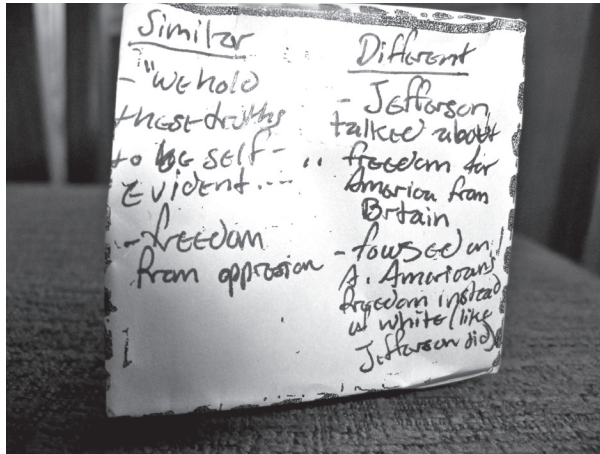 Similar
- "we hold
these truths
to be self-
Evident....
- freedom
from oppression
Different
- Jefferson
talked about
freedom for
America from
Britain
- focused on
A. American's
freedom instead
of white (like
Jefferson did)